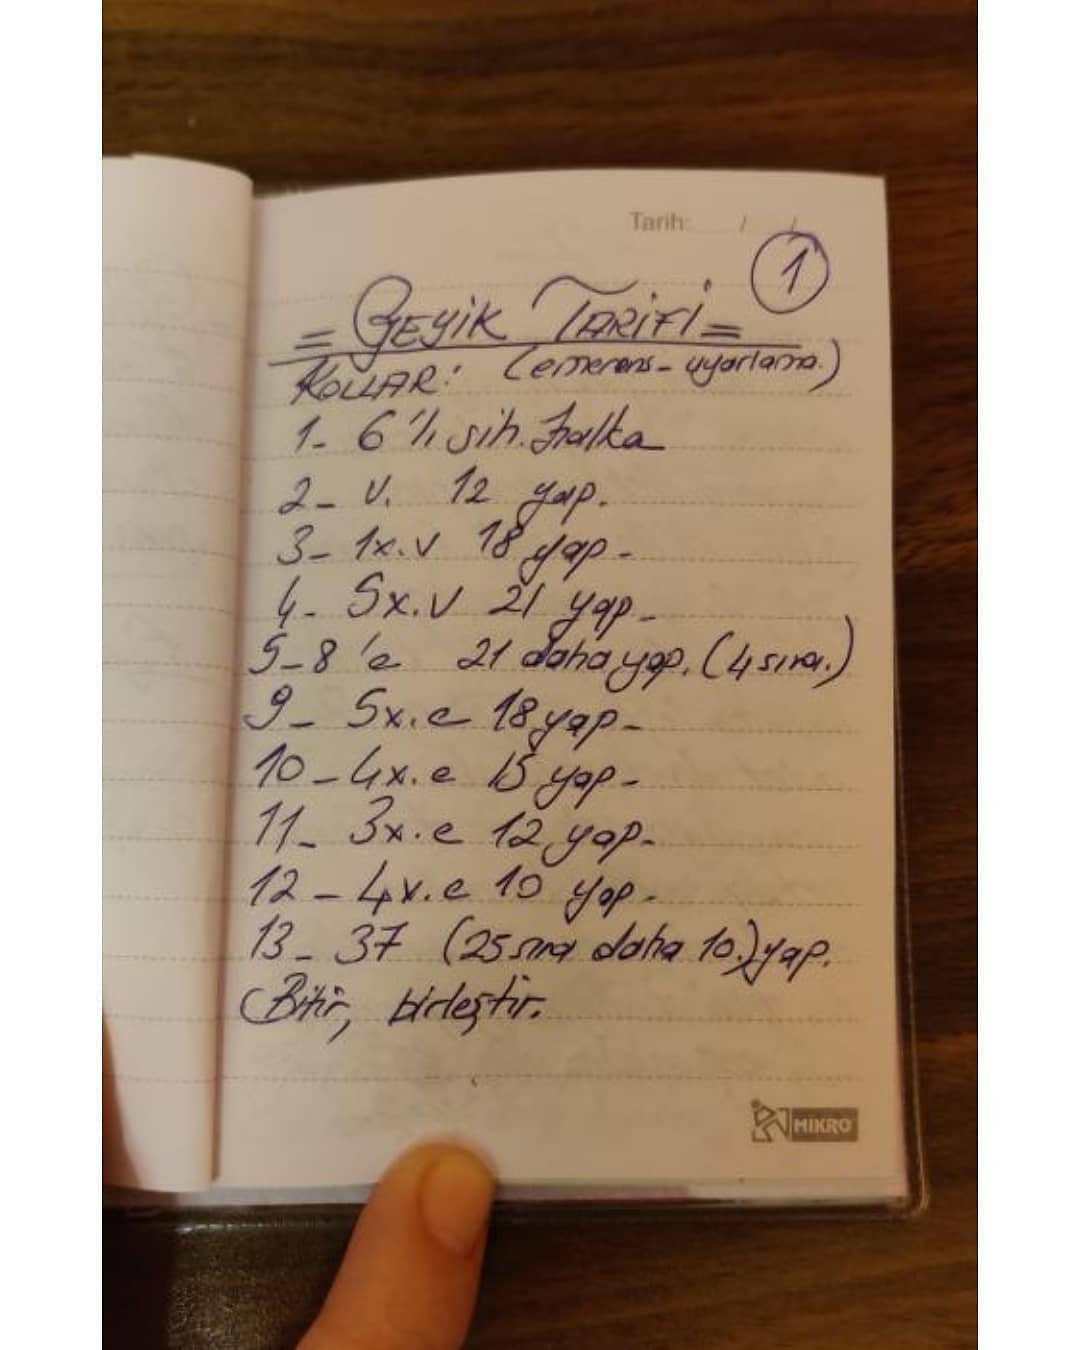 Tarih: / /
1
= GEYİK TARİFİ =
KOLLAR: (emerens-uyarlama.)
1- 6'lı sih. halka
2- v. 12 yap.
3- 1x.v 18 yap-
4- 5x.v 21 yap-
5-8'e 21 daha yap. (4 sıra.)
9- 5x.e 18 yap-
10-4x.e 15 yap-
11- 3x.e 12 yap-
12-4x.e 10 yap-
13-37 (25 sıra daha 10.) yap.
Bitir, birleştir.
MİKRO